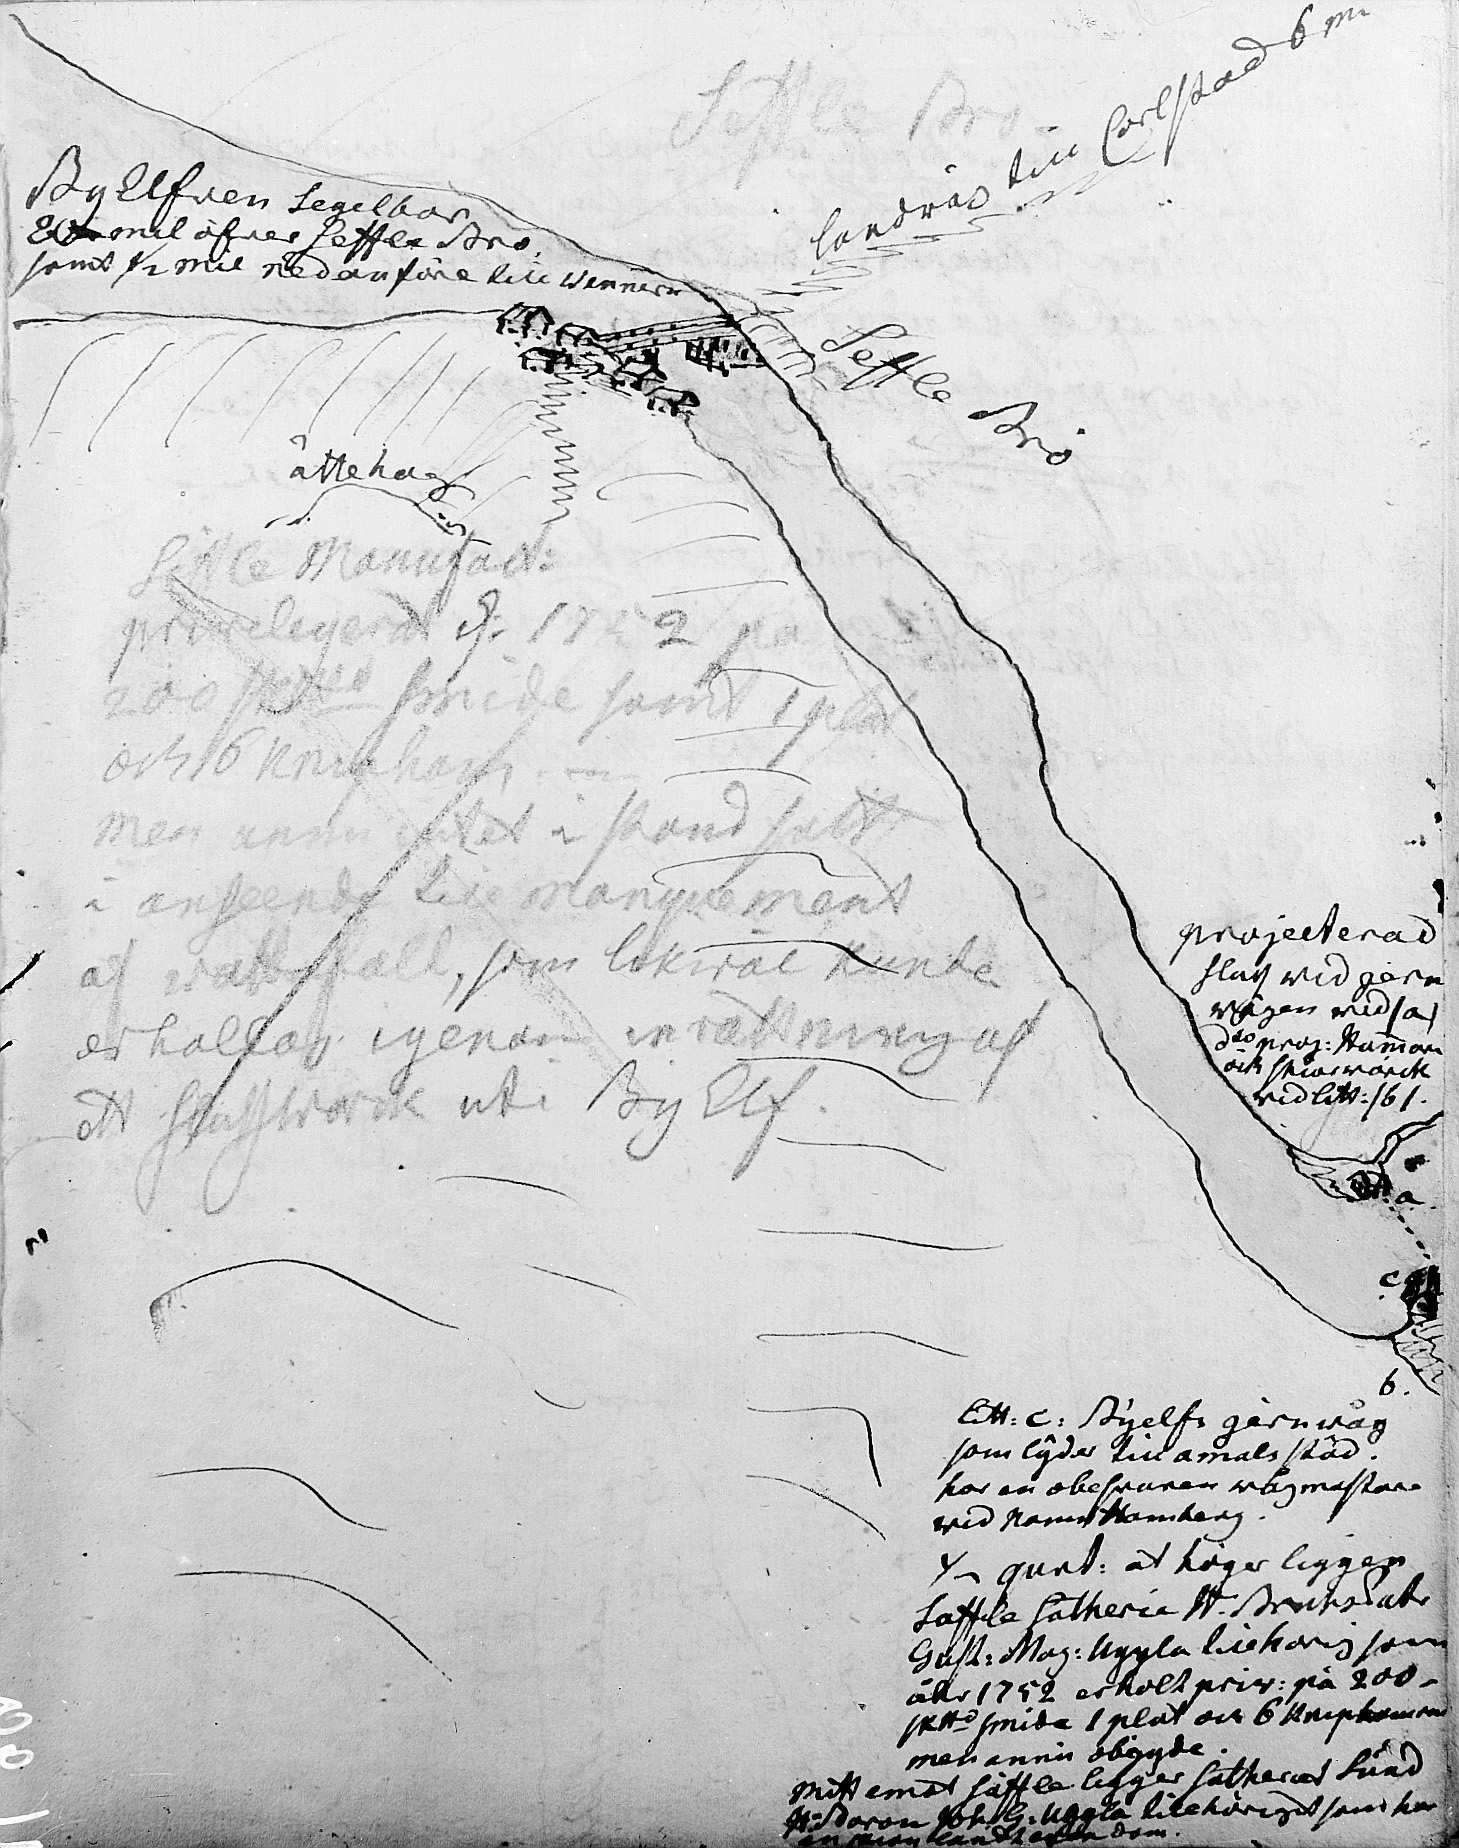 Seffle Bro
landwäg till Carlstad 6 m
By Elfven Segelbar
mil öfver Seffle Bro,
samt 1/2 mil nedanföre till Wennern
Seffle Bro
ättehög
Seffle Manufact:
privilegerat 1752 på
200 smide samt 1 plat
och 6 kniphamr.
men ännu intet i stånd satt
i anseende till manquement
af wattufall, som likwäl kunde
erhållas igenom inrättning af
ett Slusswerck uti By Elf.
projecterad
sluss wid jern
wågen wid /a/
dto proj: Hammar
och
wid litt: /b/.
a.
c
b.
Litt: C: Byelfs jernwåg
som lyder till amals stad.
har en obesvaren wågmästare
wid namn Hamberg.
qvart: åt höger ligger
Saffle Sätherie H. Bruks
Gust: Mag: Uggla tillhörig som
åhr 1752 erholt priv: på 200
smide 1 plat och 6 kniphamrar
men ännu obygde.
mitt emot Säffle ligger Sätheriet Sund
H. Baron Joh. G: Uggla tillhörigt som har